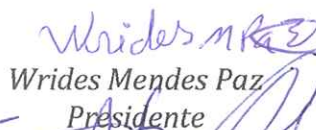 Wrides M Paz
Wrides Mendes Paz
Presidente